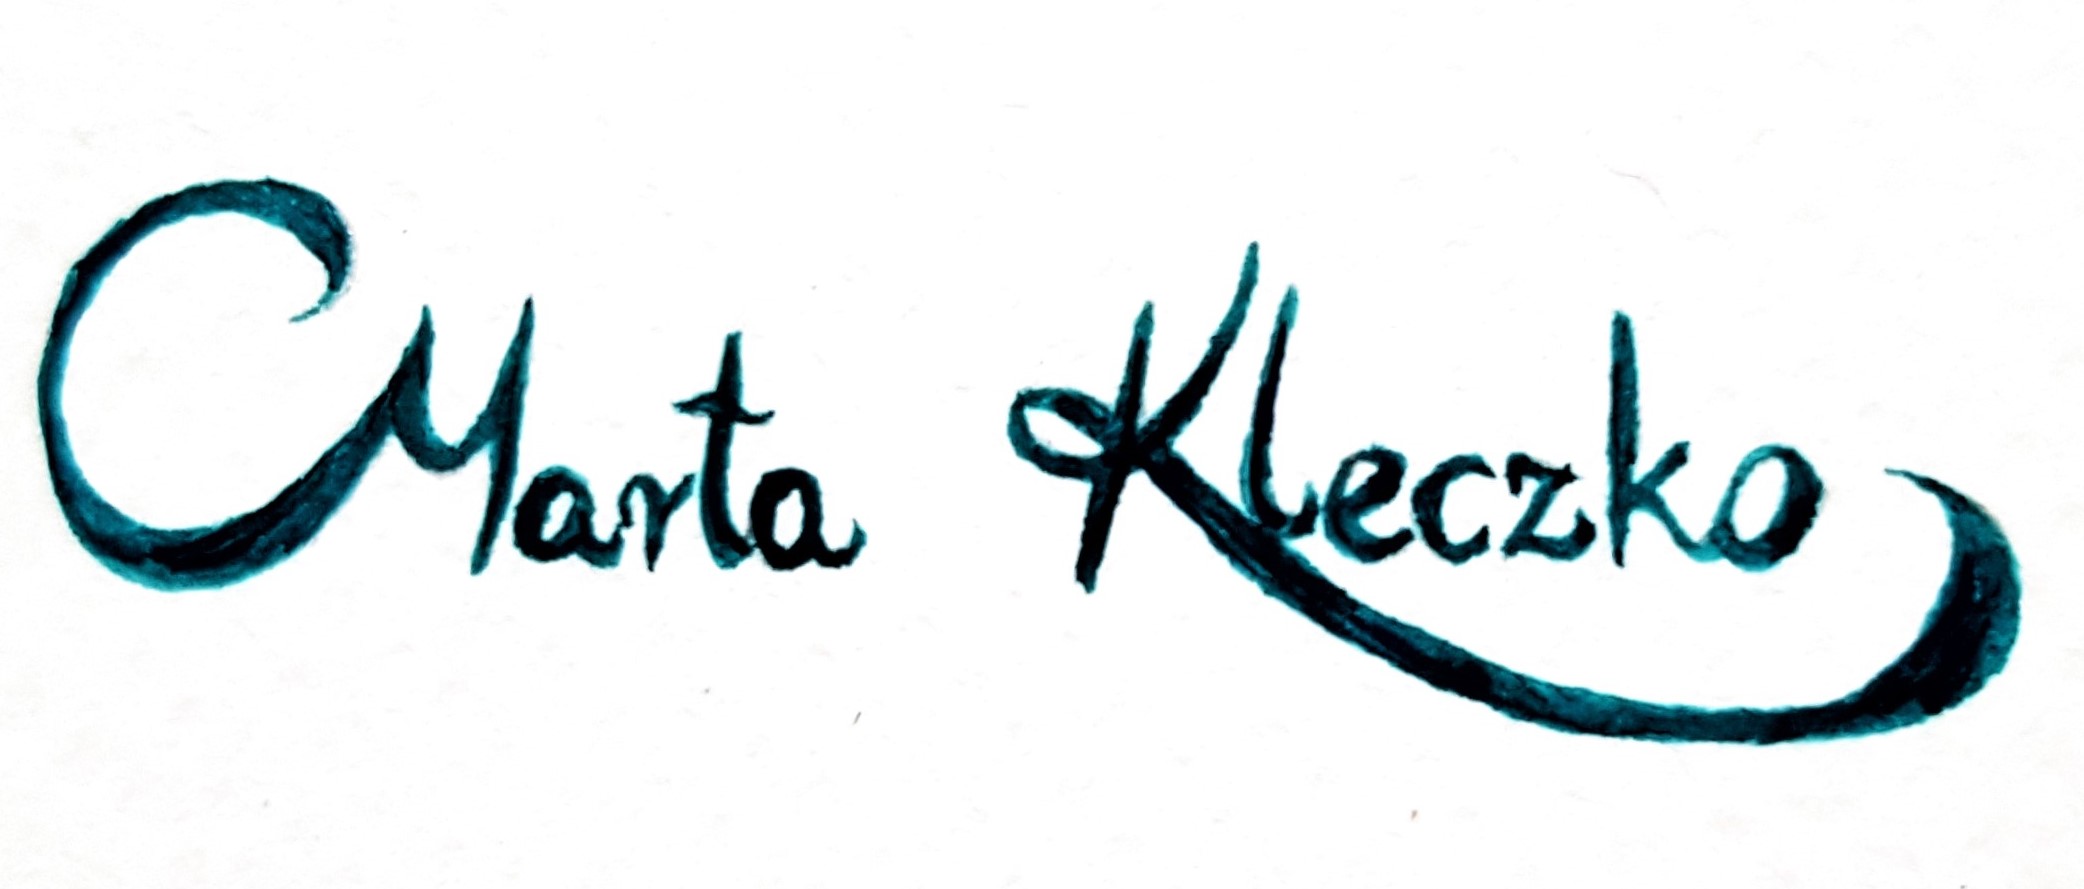 Marta Kleczko